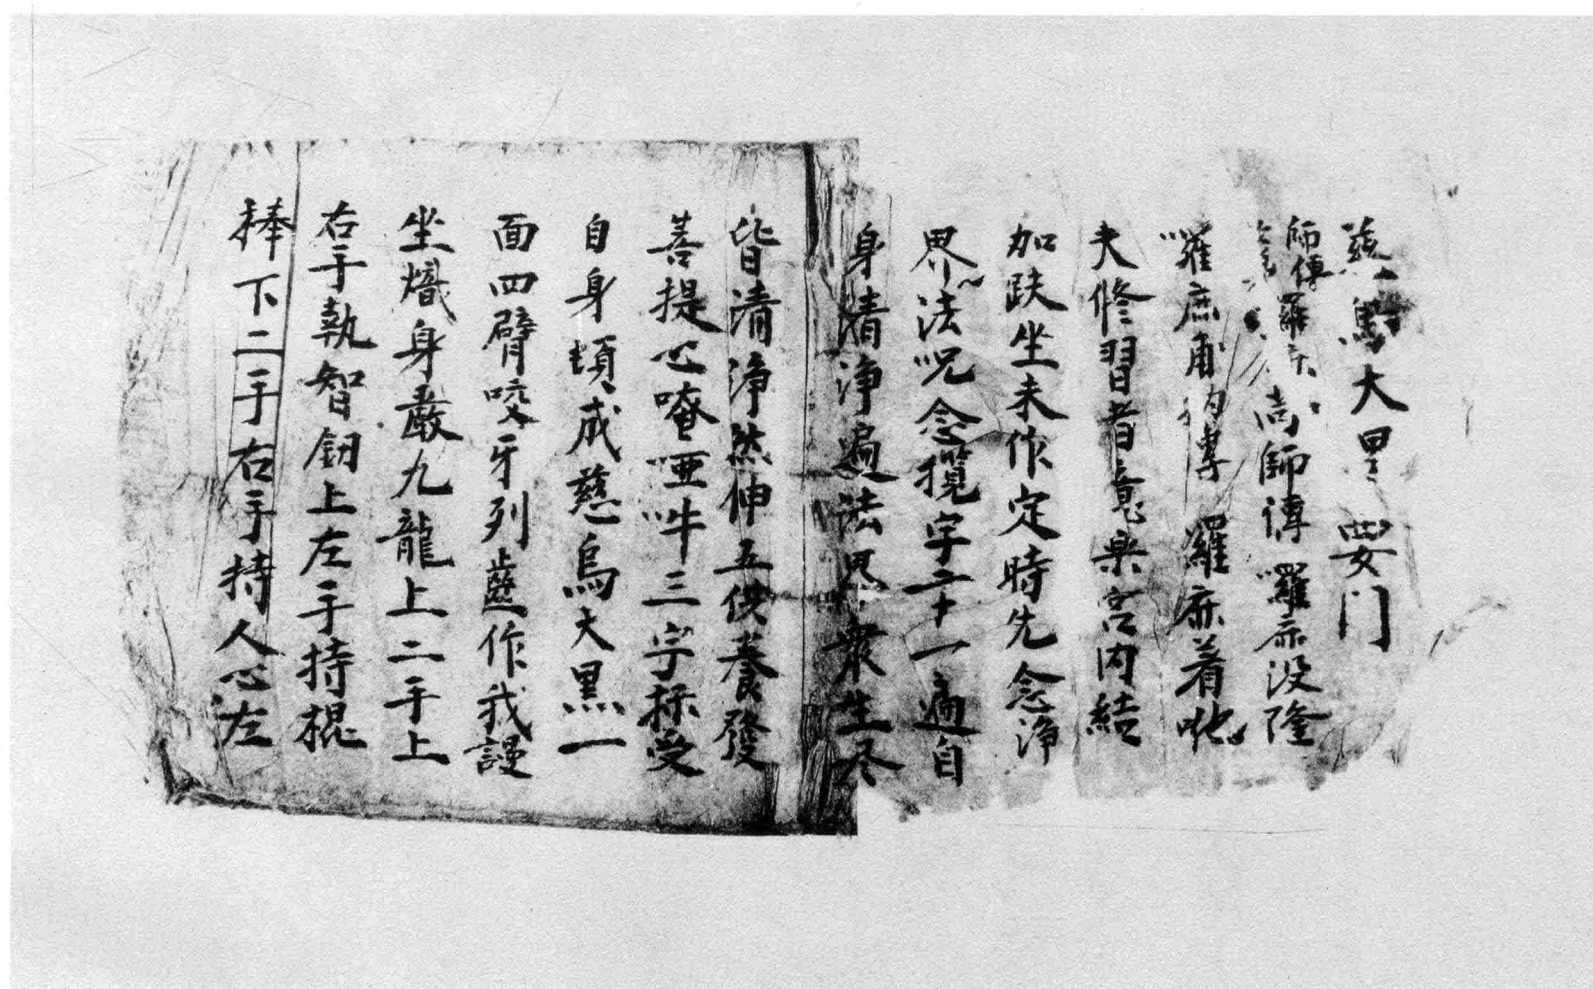 慈烏大黑要门
師傅囉 尚師傅囉麻没隆
囉麻 傅囉麻着吪
夫修習者意樂宫内結
加趺坐未作定時先念淨
界法呪念攬字二十一遍自
身清淨遍法界衆生尽
皆清淨然伸五供養發
菩提心唵哑吽三字採受
自身頓成慈烏大黑一
面四臂咬牙列齒作我謾
坐熾身嚴九龍上二手上
右手執智釰上左手持棍
棒下二手右手持人心左